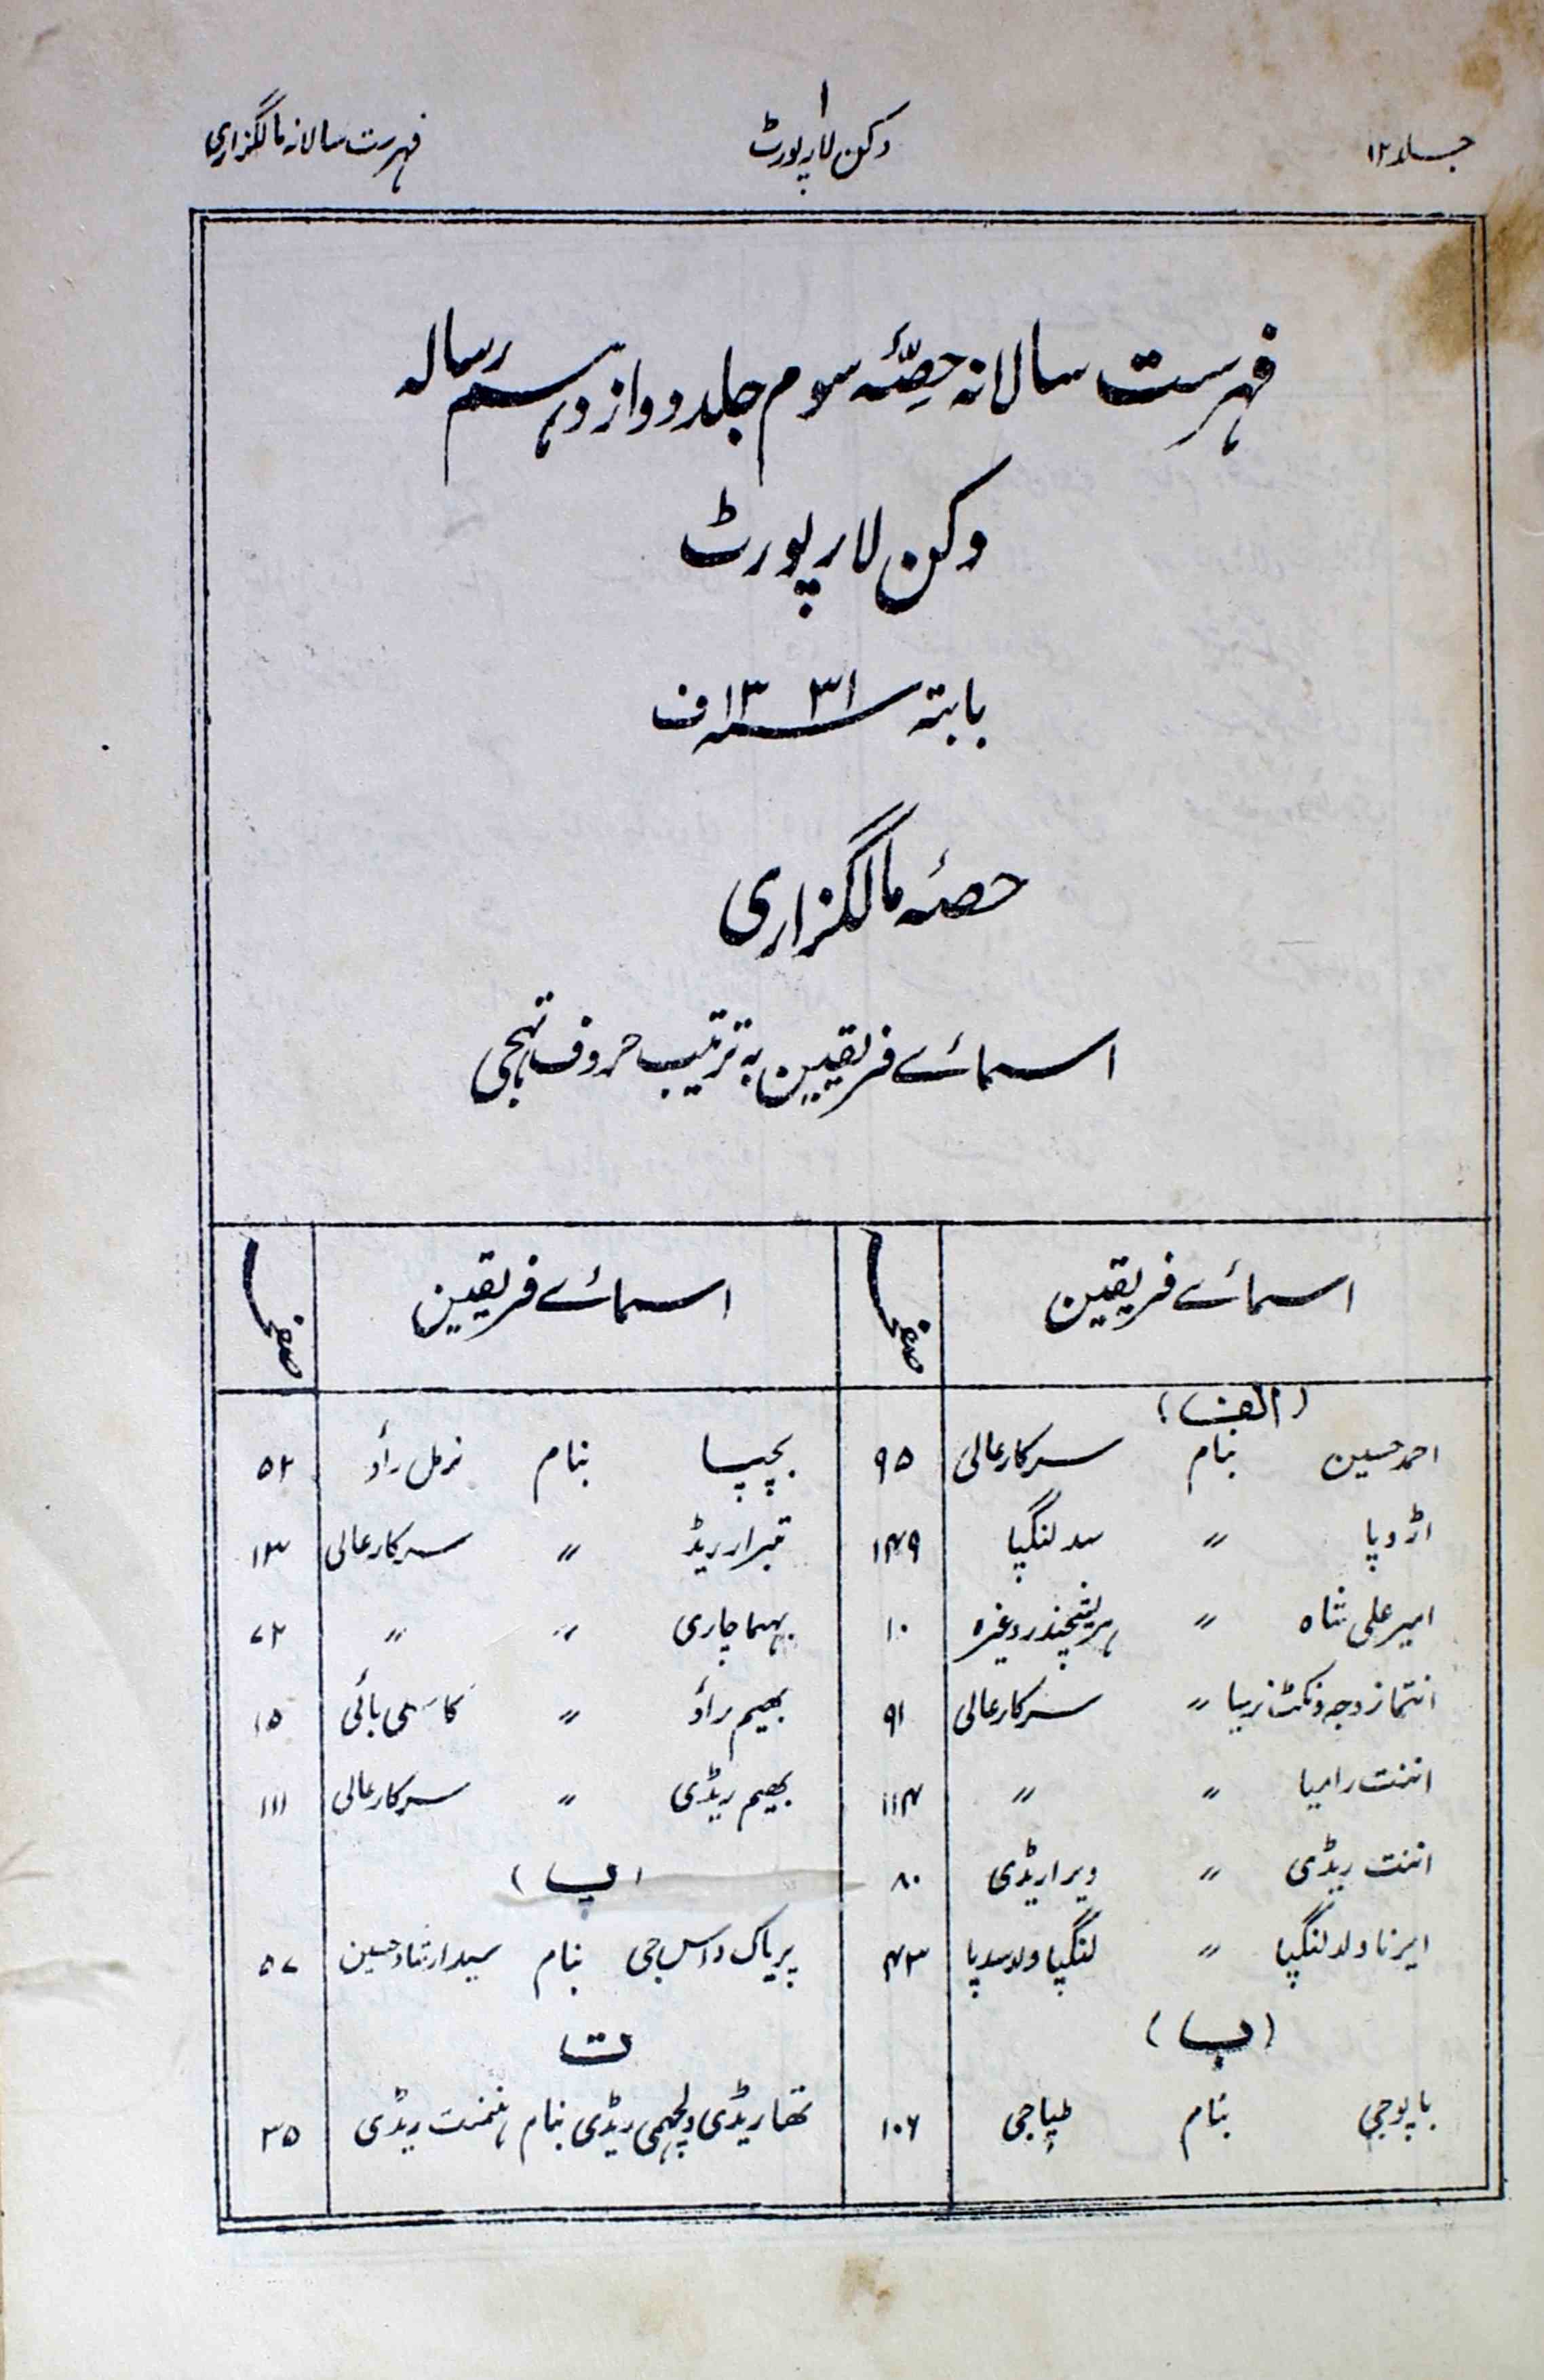 جلد ۱۲
۱
دکن لا رپورٹ
فہرست سالانہ مالگزاری
فہرست سالانہ حصّۂ سوم جلد دوازدہم رسالہ
دکن لا رپورٹ
بابتہ سنہ ۱۳۳۱ ف
حصۂ مالگزاری
اسمائے فریقین بہ ترتیب حروف تہجی
اسمائے فریقین صفحہ
(الف)
احمد حسین بنام سرکار عالی ۹۵
اڑوپا // سدلنگپا ۱۴۹
امیر علی شاہ // ہریشچندر وغیرہ ۱۰
انتما زوجہ ونکٹ نرسیا // سرکار عالی ۹۱
اننت رامیا // // ۱۱۴
اننت ریڈی // ویرا ریڈی ۸۰
ایرنا ولد لنگپا // لنگپا ولد سدپا ۴۳
(ب)
باپوجی بنام طپاجی ۱۰۶
اسمائے فریقین صفحہ
بچپا بنام نرمل راؤ ۵۲
ریڈ // سرکار عالی ۱۳
بہما چاری // // ۷۲
بھیم راؤ // بائی ۱۵
بھیم ریڈی // سرکار عالی ۱۱۱
(پ)
پریاک داس جی بنام سید ارشاد حسین ۵۷
ت
تھا ریڈی ولچھمی ریڈی بنام ہنمنت ریڈی ۳۵